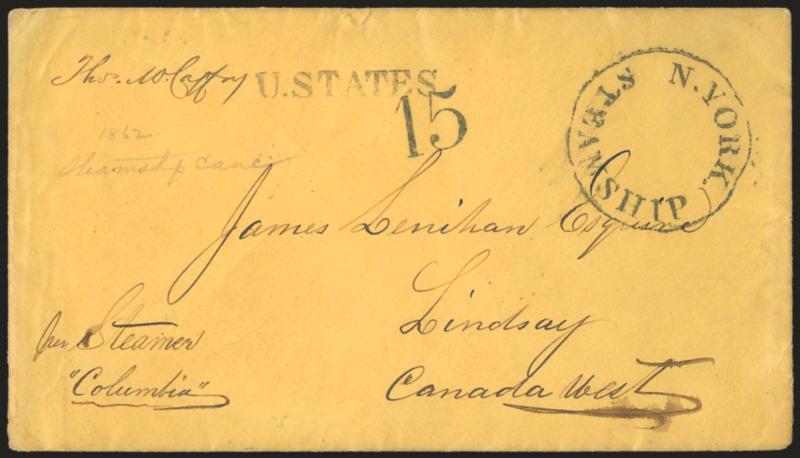 Thos. McCaffry
U.STATES
15
N.YORK
STEAMSHIP
1862
Steamship cancel
James Lenihan Esquire
Lindsay
Canada West
per Steamer
"Columbia"